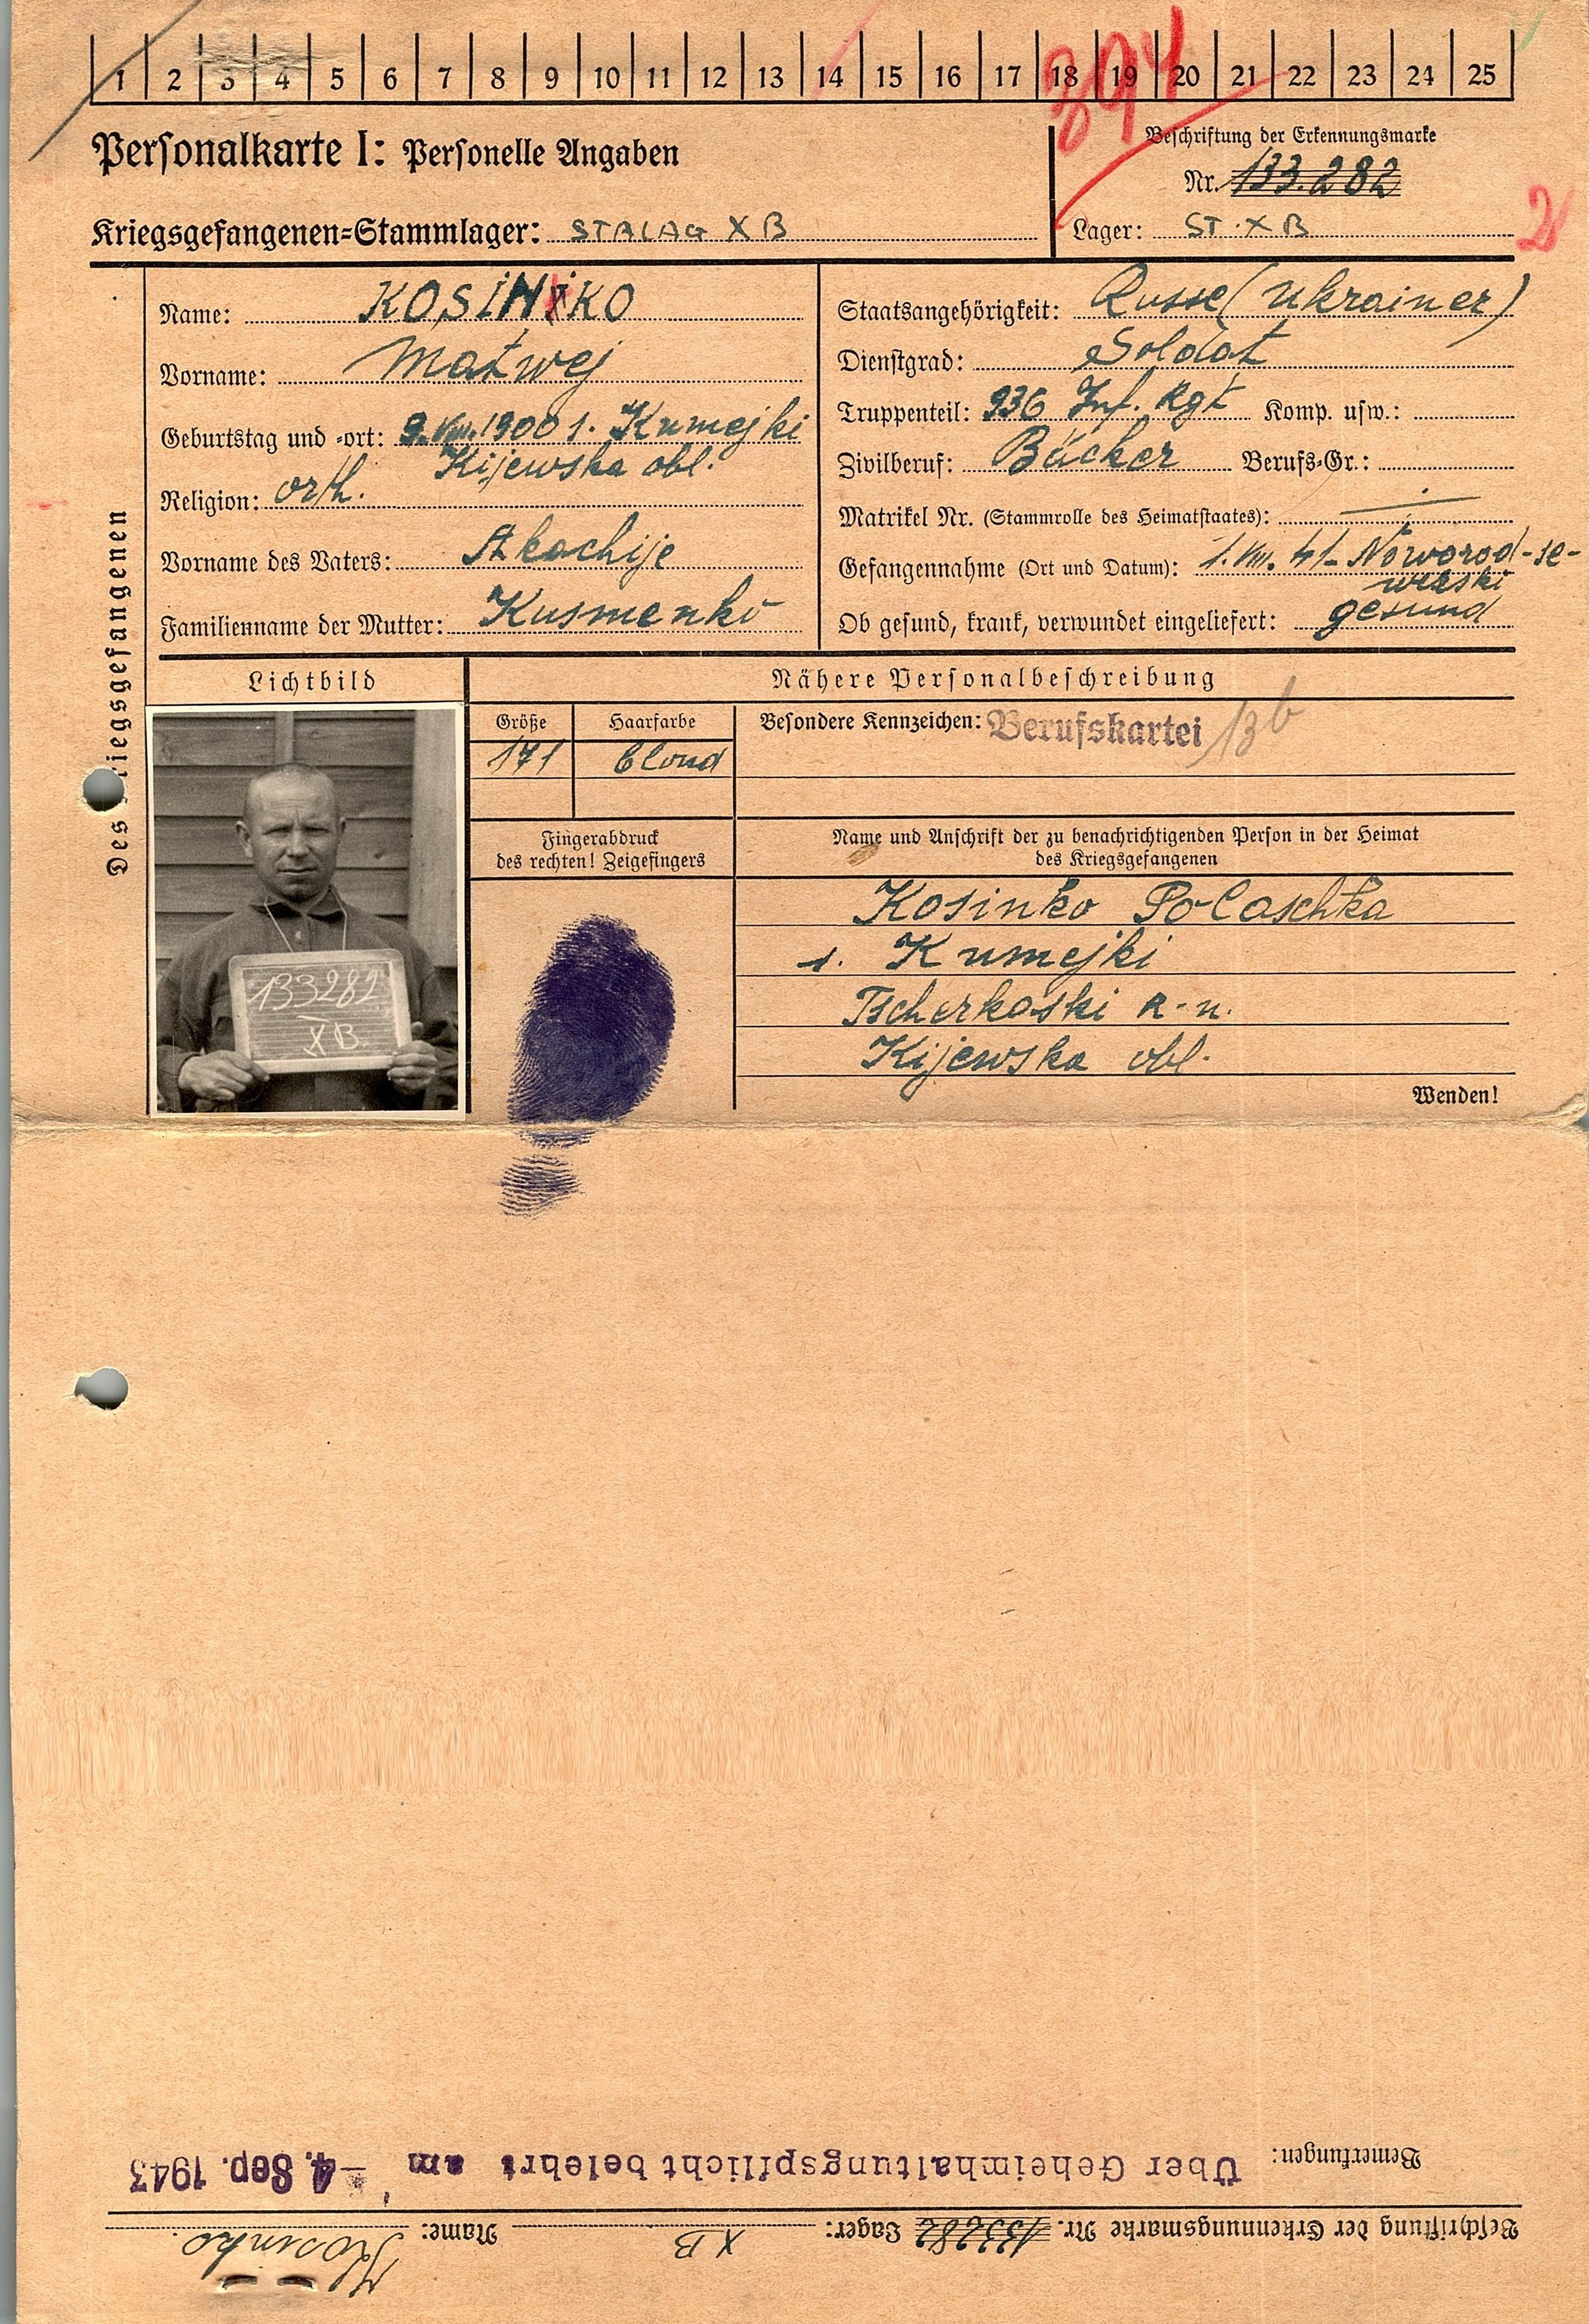 1 2 3 4 5 6 7 8 9 10 11 12 13 14 15 16 17 18 19 20 21 22 23 24 25
394
Personalkarte I: Personelle Angaben
Beschriftung der Erkennungsmarke
Nr. 133.282
Kriegsgefangenen-Stammlager: STALAG X B
Lager: ST. X B
2
Des Kriegsgefangenen
Name: KOSINKO
Vorname: Matwej
Geburtstag und -ort: 9. VIII. 1900 s. Kumejki
Kijewska obl.
Religion: orth.
Vorname des Vaters: Akachije
Familienname der Mutter: Kusmenko
Staatsangehörigkeit: Russe (Ukrainer)
Dienstgrad: Soldat
Truppenteil: 936 Inf. Rgt Komp. usw.:
Zivilberuf: Bäcker Berufs-Gr.:
Matrikel Nr. (Stammrolle des Heimatstaates): —
Gefangennahme (Ort und Datum): 1. VIII. 41 - Noworod-se-
werski
Ob gesund, krank, verwundet eingeliefert: gesund
Lichtbild
133282
X B.
Nähere Personalbeschreibung
Größe
171
Haarfarbe
blond
Besondere Kennzeichen: Berufskartei 13b
Fingerabdruck
des rechten! Zeigefingers
Name und Anschrift der zu benachrichtigenden Person in der Heimat
des Kriegsgefangenen
Kosinko Polaschka
s. Kumejki
Tscherkaski R-n.
Kijewska obl.
Wenden!
Beschriftung der Erkennungsmarke Nr. 133282 Lager: X B Name: Kosinko
Bemerkungen: Über Geheimhaltungspflicht belehrt am – 4. Sep. 1943